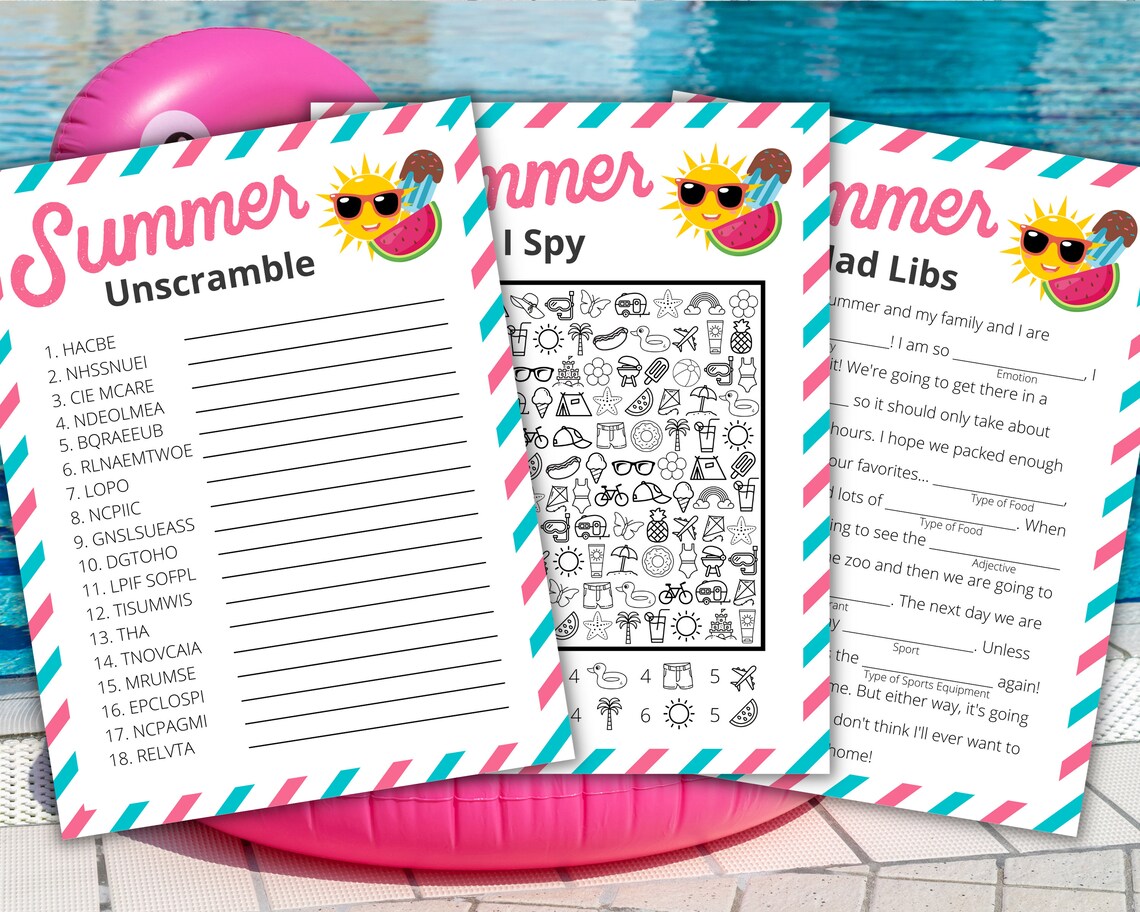 Summer
Unscramble
1. HACBE
2. NHSSNUEI
3. CIE MCARE
4. NDEOLMEA
5. BQRAEEUB
6. RLNAEMTWOE
7. LOPO
8. NCPIIC
9. GNSLSUEASS
10. DGTOHO
11. LPIF SOFPL
12. TISUMWIS
13. THA
14. TNOVCAIA
15. MRUMSE
16. EPCLOSPI
17. NCPAGMI
18. RELVTA
mmer
I Spy
4 4 5
4 6 5
mmer
ad Libs
ummer and my family and I are
! I am so , I
Emotion
it! We're going to get there in a
so it should only take about
hours. I hope we packed enough
our favorites... ,
Type of Food
lots of . When
Type of Food
ing to see the
Adjective
e zoo and then we are going to
. The next day we are
rant
y . Unless
Sport
the again!
Type of Sports Equipment
me. But either way, it's going
don't think I'll ever want to
home!